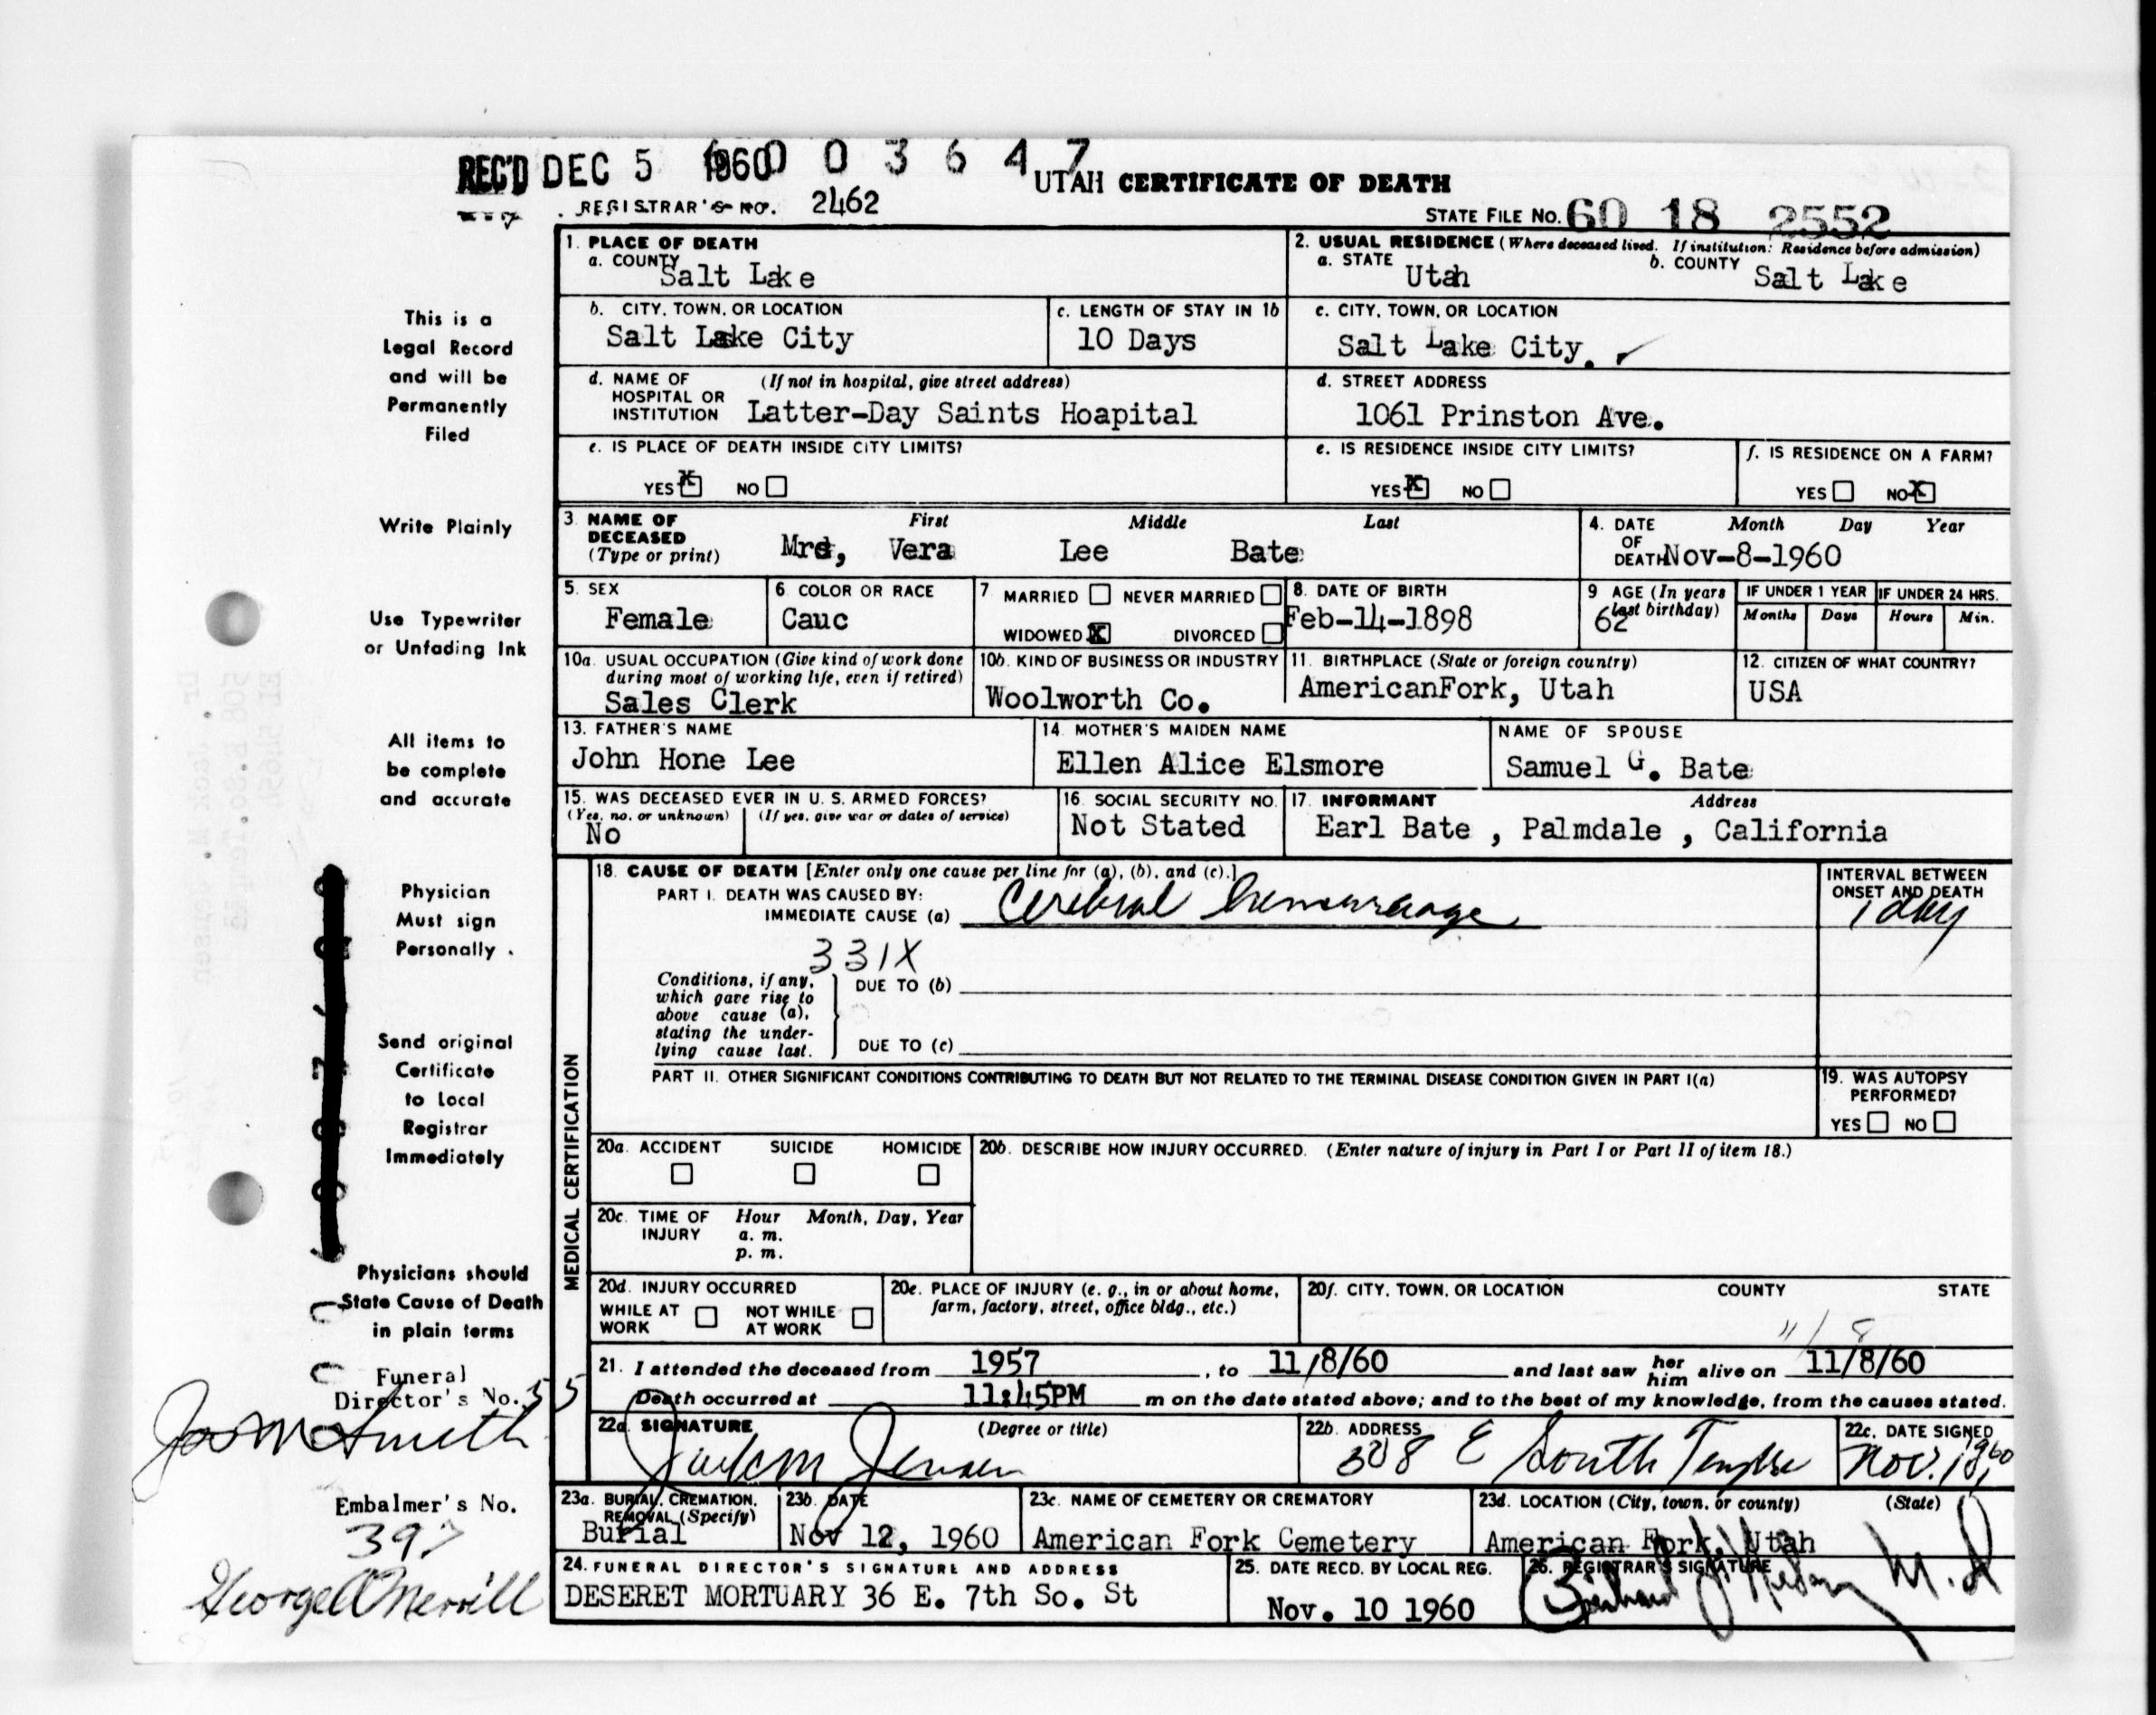 REC'D DEC 5 1960 6 0 0 3 6 4 7
UTAH CERTIFICATE OF DEATH
REGISTRAR'S NO. 2462
STATE FILE NO. 60 18 2552
1. PLACE OF DEATH
a. COUNTY
Salt Lake
2. USUAL RESIDENCE (Where deceased lived. If institution: Residence before admission)
a. STATE Utah b. COUNTY Salt Lake
b. CITY, TOWN, OR LOCATION
Salt Lake City
c. LENGTH OF STAY IN 1b
10 Days
c. CITY, TOWN, OR LOCATION
Salt Lake City.
d. NAME OF HOSPITAL OR INSTITUTION (If not in hospital, give street address)
Latter-Day Saints Hoapital
d. STREET ADDRESS
1061 Prinston Ave.
e. IS PLACE OF DEATH INSIDE CITY LIMITS?
YES X NO
e. IS RESIDENCE INSIDE CITY LIMITS?
YES X NO
f. IS RESIDENCE ON A FARM?
YES NO X
3. NAME OF DECEASED (Type or print) First Middle Last
Mrs, Vera Lee Bate
4. DATE OF DEATH Month Day Year
Nov-8-1960
5. SEX
Female
6 COLOR OR RACE
Cauc
7 MARRIED NEVER MARRIED
WIDOWED X DIVORCED
8. DATE OF BIRTH
Feb-14-1898
9 AGE (In years last birthday)
62
IF UNDER 1 YEAR
Months Days
IF UNDER 24 HRS.
Hours Min.
10a. USUAL OCCUPATION (Give kind of work done during most of working life, even if retired)
Sales Clerk
10b. KIND OF BUSINESS OR INDUSTRY
Woolworth Co.
11. BIRTHPLACE (State or foreign country)
AmericanFork, Utah
12. CITIZEN OF WHAT COUNTRY?
USA
13. FATHER'S NAME
John Hone Lee
14 MOTHER'S MAIDEN NAME
Ellen Alice Elsmore
NAME OF SPOUSE
Samuel G. Bate
15. WAS DECEASED EVER IN U. S. ARMED FORCES?
(Yes, no, or unknown) (If yes, give war or dates of service)
No
16 SOCIAL SECURITY NO.
Not Stated
17. INFORMANT Address
Earl Bate , Palmdale , California
MEDICAL CERTIFICATION
18. CAUSE OF DEATH [Enter only one cause per line for (a), (b), and (c).]
PART I. DEATH WAS CAUSED BY:
IMMEDIATE CAUSE (a) Cerebral hemorrhage
INTERVAL BETWEEN ONSET AND DEATH
1 day
331X
Conditions, if any, which gave rise to above cause (a), stating the underlying cause last.
DUE TO (b)
DUE TO (c)
PART II. OTHER SIGNIFICANT CONDITIONS CONTRIBUTING TO DEATH BUT NOT RELATED TO THE TERMINAL DISEASE CONDITION GIVEN IN PART I(a)
19. WAS AUTOPSY PERFORMED?
YES NO
20a. ACCIDENT SUICIDE HOMICIDE
20b. DESCRIBE HOW INJURY OCCURRED. (Enter nature of injury in Part I or Part II of item 18.)
20c. TIME OF INJURY Hour Month, Day, Year
a. m.
p. m.
20d. INJURY OCCURRED
WHILE AT WORK NOT WHILE AT WORK
20e. PLACE OF INJURY (e. g., in or about home, farm, factory, street, office bldg., etc.)
20f. CITY, TOWN, OR LOCATION COUNTY STATE
11/8
21. I attended the deceased from 1957, to 11/8/60 and last saw her him alive on 11/8/60
Death occurred at 11:45PM m on the date stated above; and to the best of my knowledge, from the causes stated.
22a. SIGNATURE (Degree or title)
Jack M Jensen
22b. ADDRESS
508 E South Temple
22c. DATE SIGNED
Nov. 1960
23a. BURIAL, CREMATION, REMOVAL (Specify)
Burial
23b. DATE
Nov 12, 1960
23c. NAME OF CEMETERY OR CREMATORY
American Fork Cemetery
23d. LOCATION (City, town, or county) (State)
American Fork, Utah
24. FUNERAL DIRECTOR'S SIGNATURE AND ADDRESS
DESERET MORTUARY 36 E. 7th So. St
25. DATE RECD. BY LOCAL REG.
Nov. 10 1960
26. REGISTRAR'S SIGNATURE
M. D
This is a
Legal Record
and will be
Permanently
Filed
Write Plainly
Use Typewriter
or Unfading Ink
All items to
be complete
and accurate
Physician
Must sign
Personally.
Send original
Certificate
to Local
Registrar
Immediately
Physicians should
State Cause of Death
in plain terms
Funeral
Director's No. 55
Jos M Smith
Embalmer's No.
397
George A Merrill